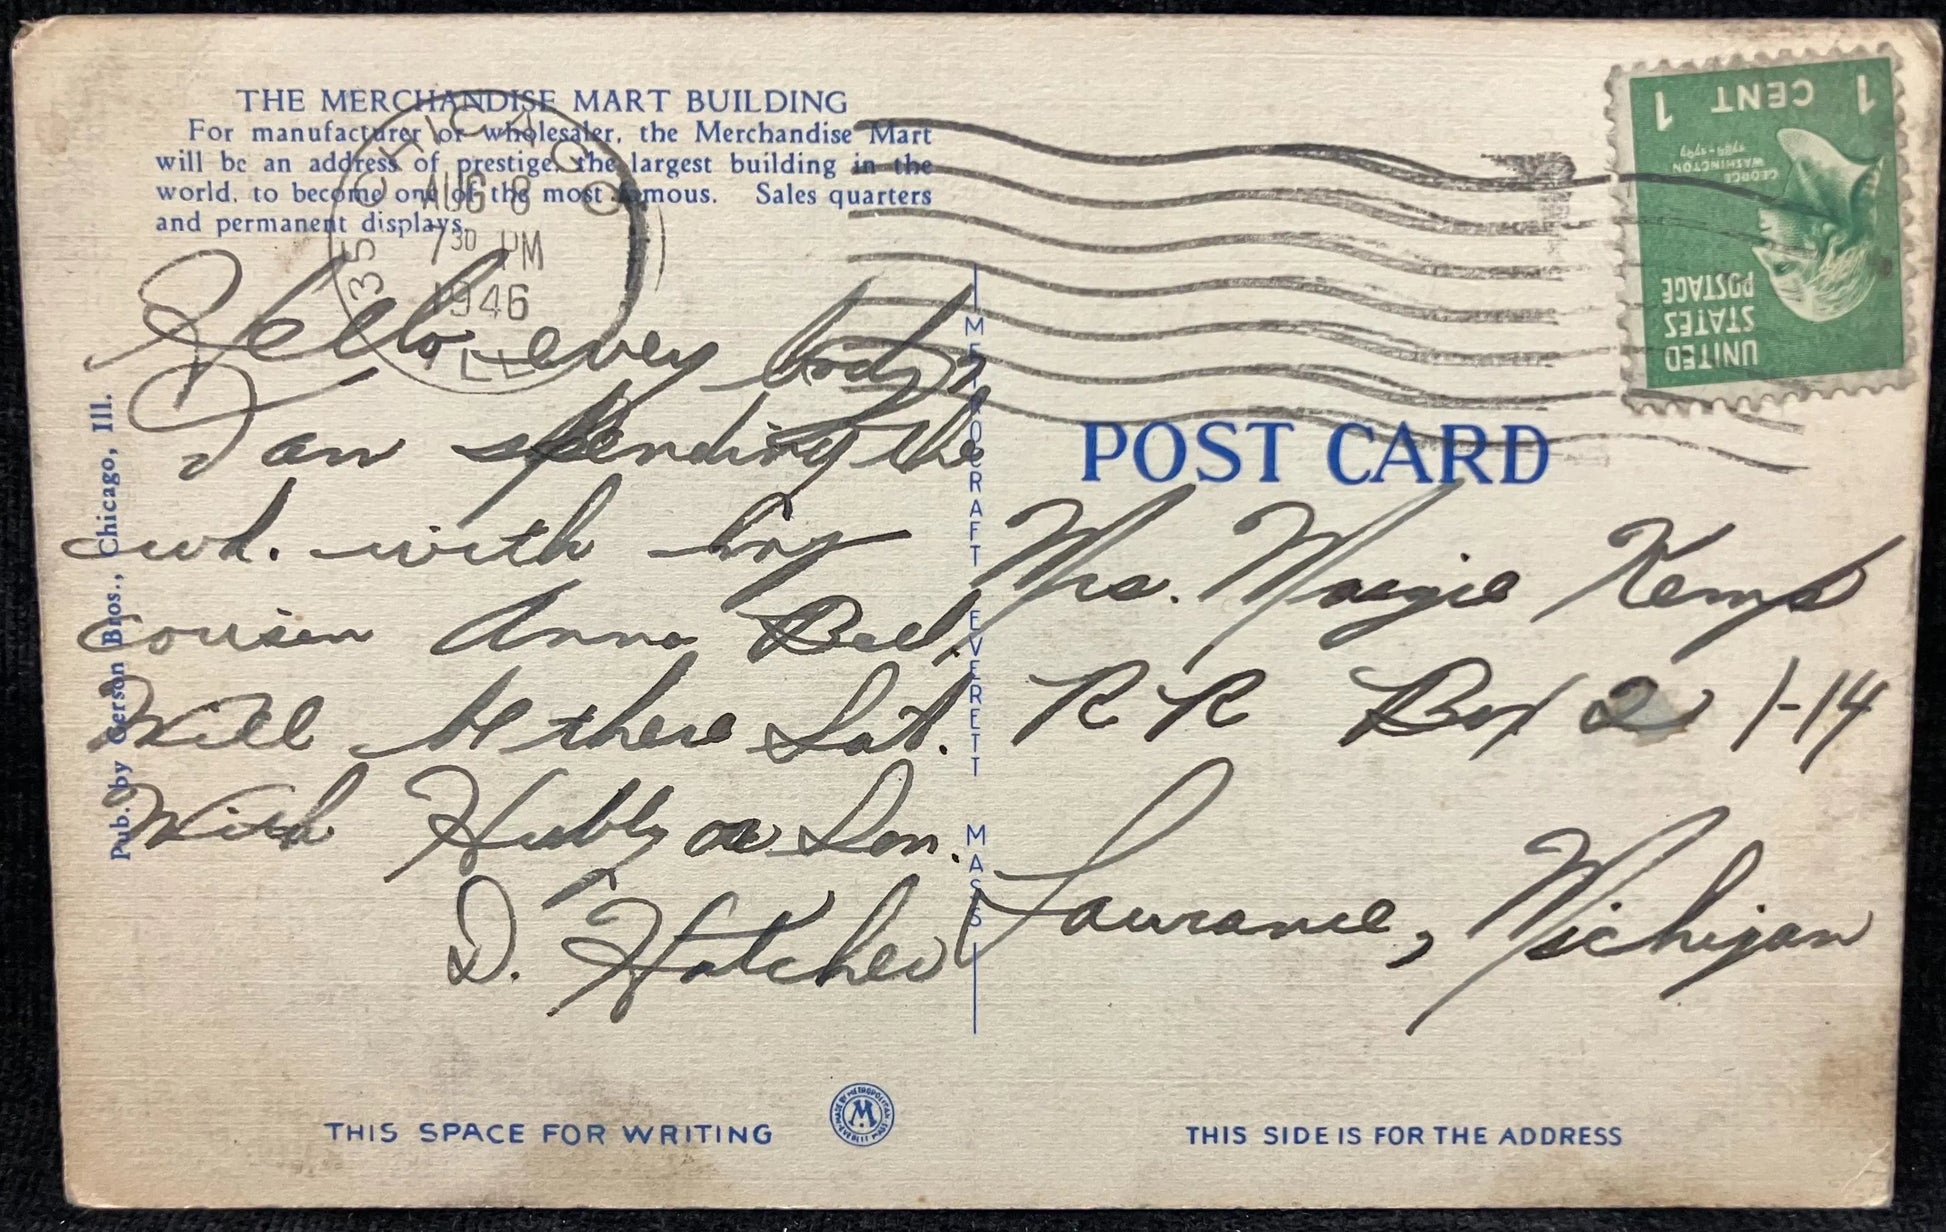 THE MERCHANDISE MART BUILDING
For manufacturer or wholesaler, the Merchandise Mart
will be an address of prestige, the largest building in the
world, to become one of the most famous. Sales quarters
and permanent displays.
CHICAGO
35
AUG 8
7 30 PM
1946
ILL
1 CENT 1
GEORGE
WASHINGTON
1789-1797
UNITED
STATES
POSTAGE
POST CARD
Hello every body,
I am spending the
wd. with my
cousin Anna Bell.
Will be there Sat.
With Hubby or Son.
D. Hatcher
Mrs. Margie Kemp
RR Box 2 1-14
Lawrance, Michigan
Pub. by Gerson Bros., Chicago, Ill.
METROCRAFT EVERETT MASS
THIS SPACE FOR WRITING
MADE BY METROPOLITAN
M
EVERETT MASS
THIS SIDE IS FOR THE ADDRESS